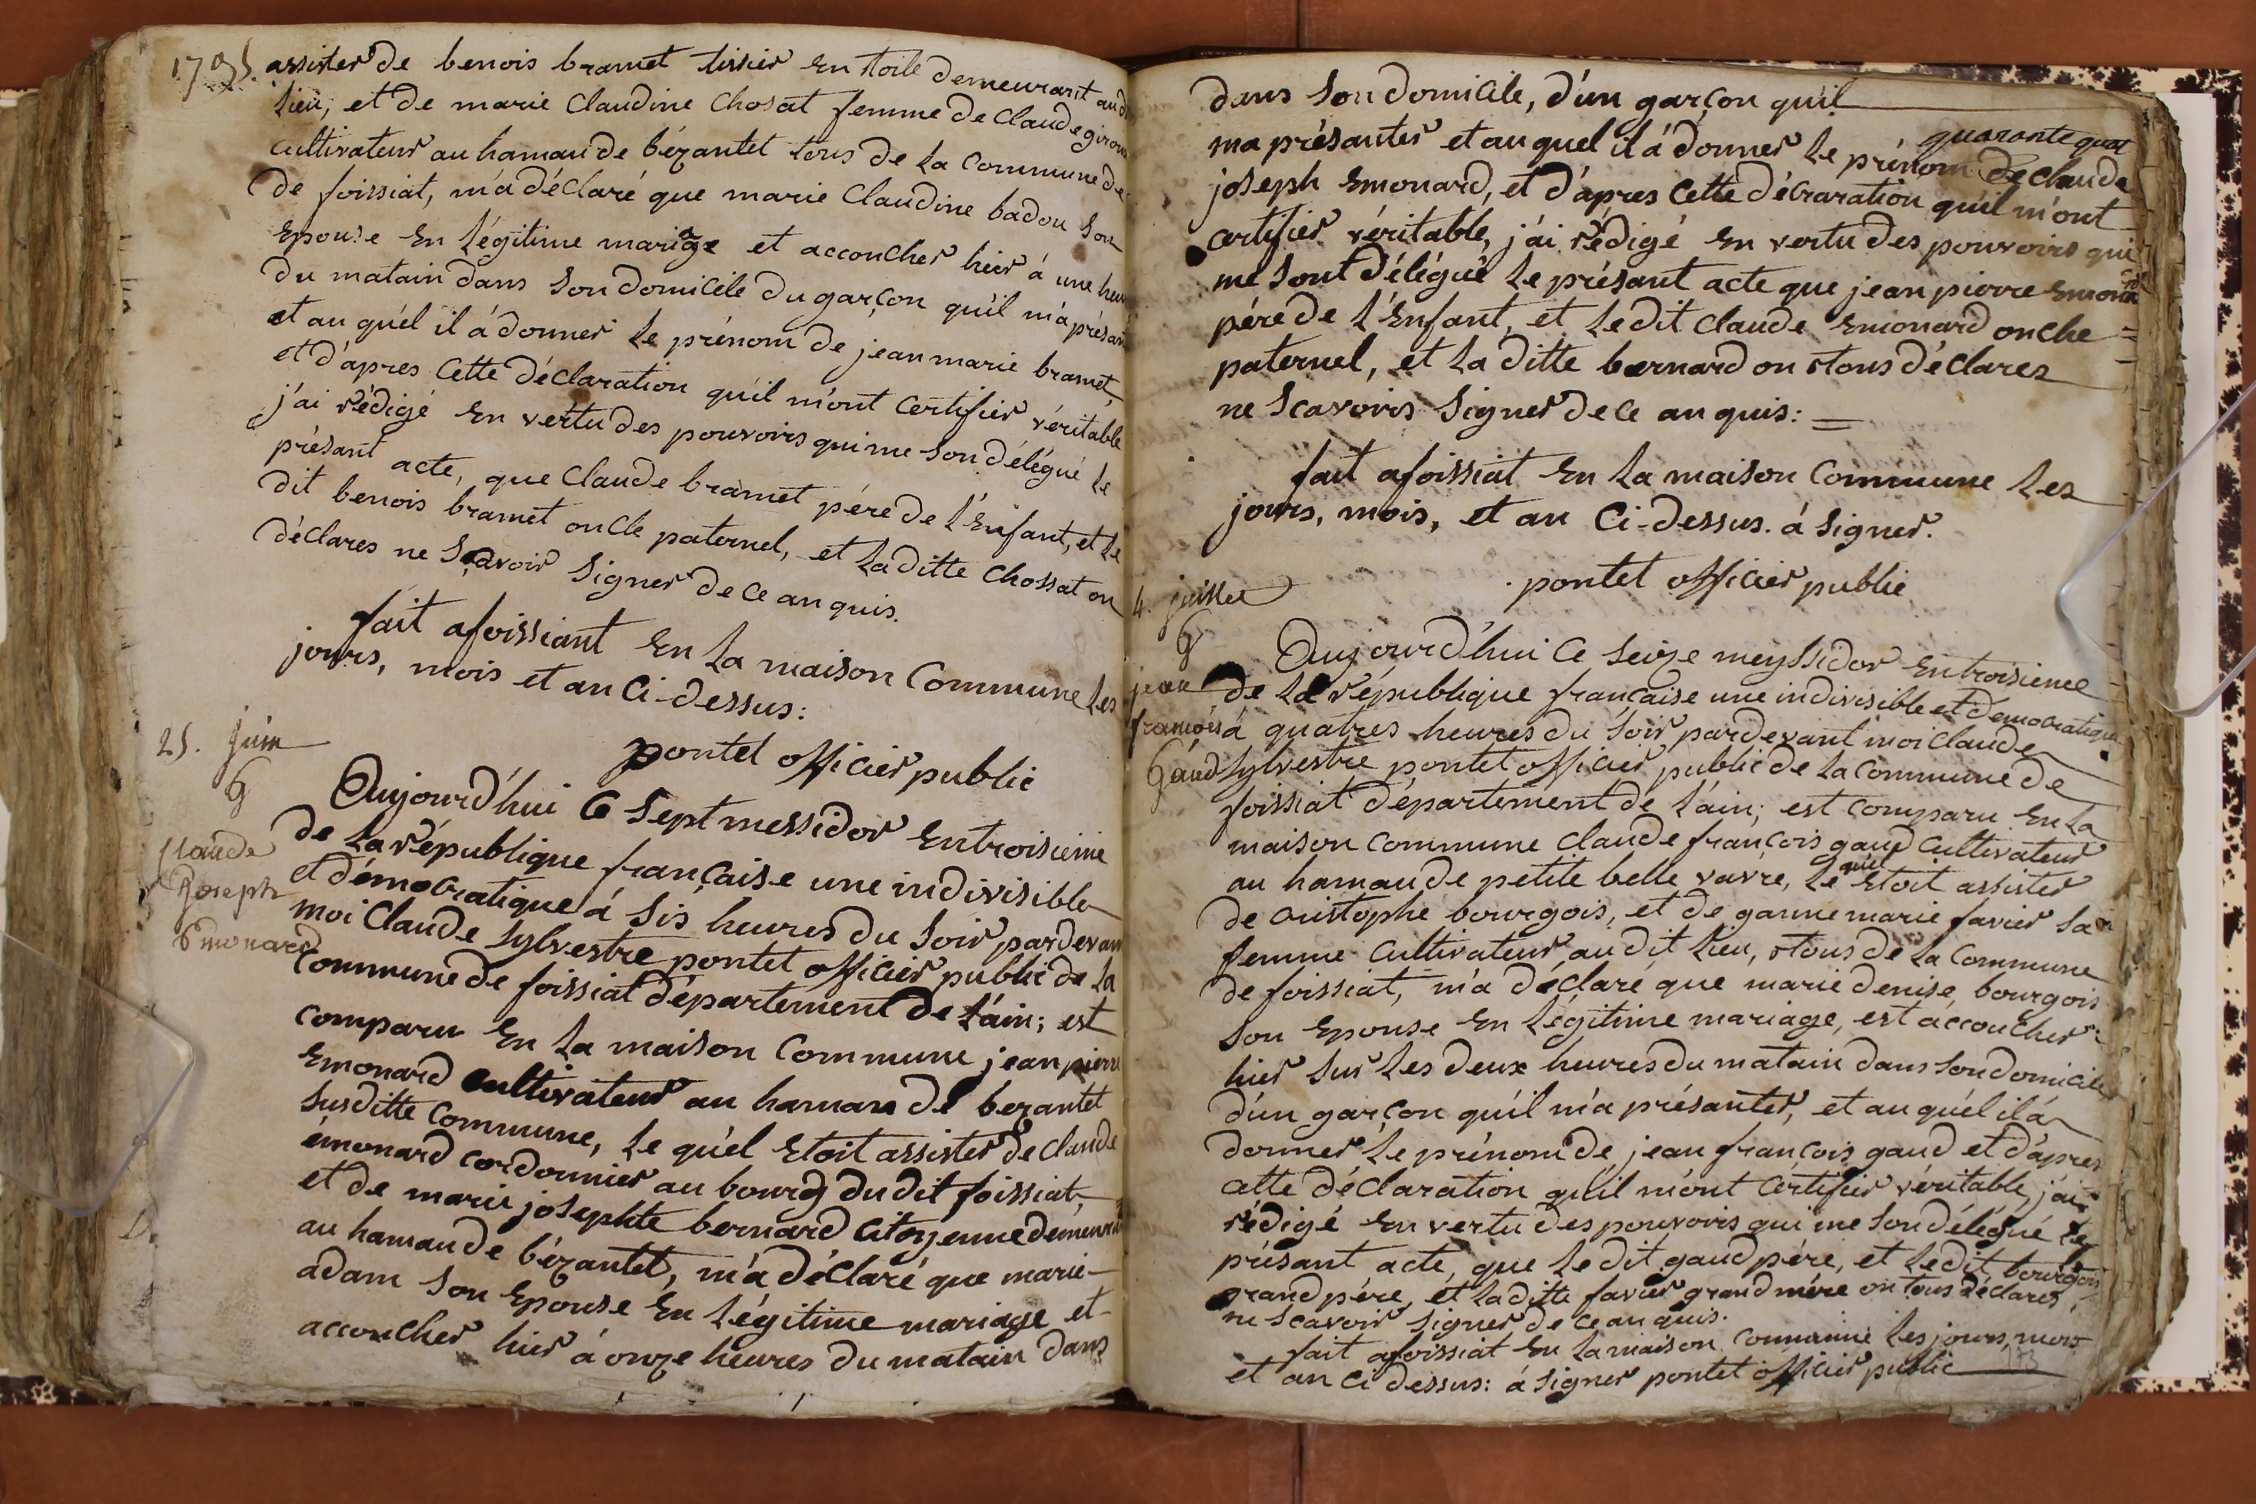 1795.
assister de benois bramet tissier En toile demeurant aud
lieu, et de marie Claudine Chosat femme de Claude giron
cultivateur au hamau de bézantet tous de la Commune de
de foissiat, m'a déclaré que marie Claudine badou son
Epouse En légitime mariage et accoucher hier á une heur
du matain dans son domicile du garçon qu'il m'a présan
et au quél il á donner le prénom de jean marie bramet,
et d'apres Cette déclaration qu'il m'ont Certifier véritable
j'ai rédigé En vértu des pouvoirs qui me son délégué le
présant acte, que Claude bramet pére de l'Enfant, et le
dit benois bramet oncle paternel, et la ditte Chossat on
déclares ne Scavoir Signer de ce an quis.
fait a foissiant En la maison Commune les
jours, mois et an Ci-dessus:
pontet officier public
25. juin
G
Claude
Joseph
Emonard
Aujourd'hui Ce Sept messidor En troisieme
de la république française une indivisible
et démocratique á sis heures du Soir, par devan
moi Claude Sylvestre pontet officier public de la
Commune de foissiat département de l'áin; est
comparu En la maison Commune jean pierre
Emonard Cultivateur au hamau de bezantet
Susditte Commune, le quél Etoit assister de Claude
émonard cordonnier au bourg du dit foissiat,
et de marie josephte bernard Citoyenne demeurant
au hamau de bézantet, m'a déclaré que marie
adam son Epouse En légitime mariage et
accoucher hier á onze heures du matain dans
dans Son domicile, d'ún garçon quil
quarante quat
ma présanter et au quel il á donner le prénom de claude
joseph Emonard, et d'apres Cette décraration quil m'ont
certifier véritable, j'ai rédigé En vertu des pouvoirs qui
me sont délégué le présant acte que jean pierre Emonard
pére de l'Enfant, et le dit Claude Emonard onche
paternel, et la ditte bernard on tous déclares
ne Scavoirs Signer de ce an quis:
fait a foissiat En la maison Commune les
jours, mois, et an Ci-dessus. á Signer.
pontet officier public
4. juillet
G
jean
françois
Gaud
Aujourd'hui Ce Seize meyssidor En troisieme
de la république française une indivisible et democratique
á quatres heures du Soir par devant moi Claude
Sylvestre pontet officier public de la Commune de
foissiat département de l'áin; est comparu En la
maison Commune Claude françois gaud Cultivateur
au hamau de petite belle vavre, le quél Etoit assister
de cristophe bourgois, et de ganne marie favier sa
femme Cultivateur, au dit lieu, tous de la Commune
de foissiat, m'a déclaré que marie denise bourgois
son Epouse En légitime mariage, est accoucher
hier sur les deux heures du matain dans son domicile
d'ún garçon qu'il m'a présanter, et au quél il á
donner le prénom de jean françois gaud et d'apres
cette déclaration qu'il m'ont Certifier véritable, j'ai
rédigé En vertu des pouvoirs qui me son délégué le
présant acte, que le dit gaud pére, et le dit bourgois
grand pére, et la ditte favier grand mére on tous déclares
ne Scavoir Signer de ce an quis.
fait a foissiat En la maison commune les jours, mois
et an ci dessus: á Signer pontet officier public